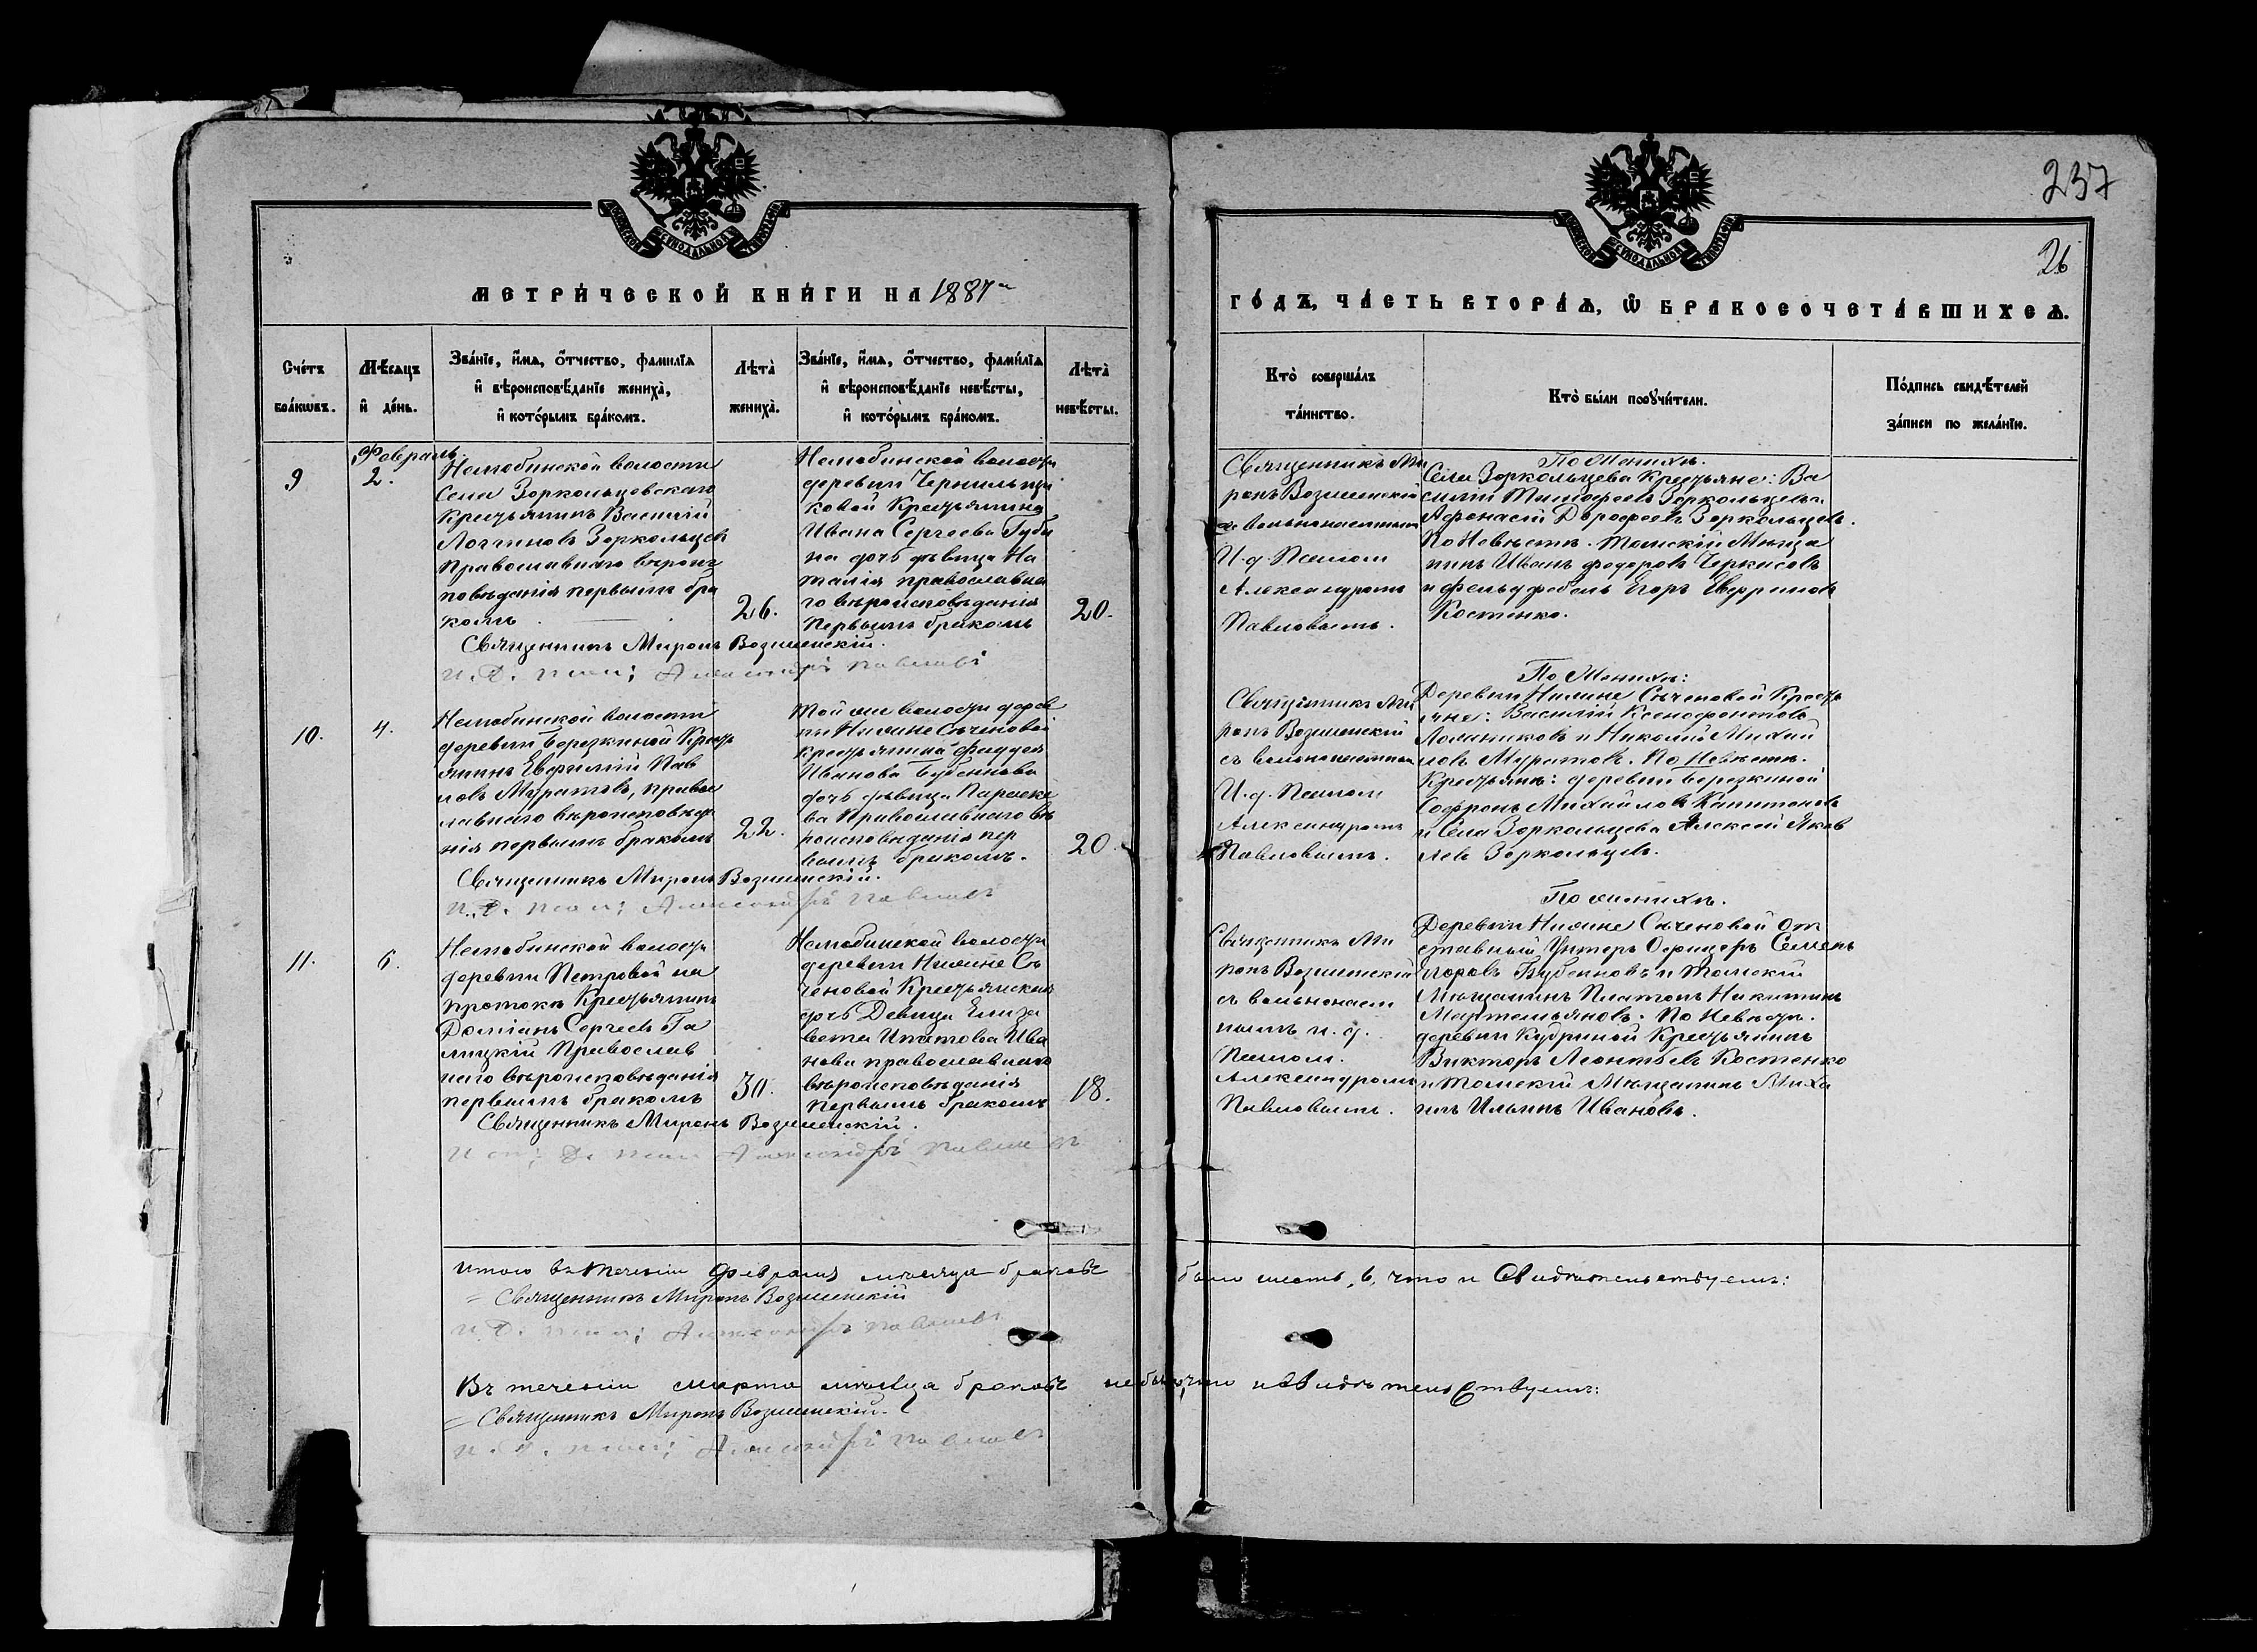 237
26
МЕТРИЧЕСКОЙ КНИГИ НА 1887
ГОДЪ, ЧАСТЬ ВТОРАѦ, Ѡ БРАКОСОЧЕТАВШИХСѦ.
Счетъ браковъ.
Мѣсѧцъ и день.
Званіе, имѧ, отчество, фамиліѧ
и вѣроисповѣданіе жениха,
и которымъ бракомъ.
Лѣта жениха.
Званіе, имѧ, отчество, фамиліѧ
и вѣроисповѣданіе невѣсты,
и которымъ бракомъ.
Лѣта невѣсты.
Кто совершалъ
таинство.
Кто были поручители.
Подпись свидѣтелей
записи по желанію.
9
Февраль
2.
Нелюбинской волости
Села Зоркольцевскаго
Крестьянинъ Василій
Логгиновъ Зоркольцев
Православнаго вѣроис
повѣданія первымъ бра
комъ
26.
Нелюбинской волости
деревни Чернильщи
ковой Крестьянина
Ивана Сергеева Губи
на дочь дѣвица На
талія православна
го вѣроисповѣданія
Первымъ бракомъ
20.
Священникъ Ми
ронъ Вознесенскій
съ вольнонаемным
И.д. Псалом
Александромъ
Павловымъ.
По Женихѣ.
Села Зоркольцева Крестьяне: Ва
силій Тимофеевъ Зоркольцевъ и
Афонасій Дорофеевъ Зоркольцевъ.
По Невѣстѣ. Томскій Мѣща
нинъ Иванъ Федоровъ Черкасовъ
и фельдфебель Егоръ
Костенко.
Священникъ Миронъ Вознесенскій.
И. Д. псал; Александръ Павловъ
10.
4.
Нелюбинской волости
деревни Березкиной Кресть
янинъ Евфимій Пав
ловъ Муратовъ, правос
лавнаго вѣроисповѣда
нія первымъ бракомъ
22.
Той же волости дерев
ни Нижне Сѣченовой
крестьянина Фаддея
Иванова Бубеннова
дочь дѣвица Параске
ва Православнаго вѣ
роисповѣданія пер
вымъ бракомъ.
20
Священникъ Ми
ронъ Вознесенскій
съ вольнонаемным
И.д. Псалом
Александромъ
Павловымъ.
По Женихѣ:
Деревни Нижне Сѣченовой Кресть
яне: Василій Ксенофонтовъ
Ложниковъ и Николай Михай
ловъ Муратовъ. По Невѣстѣ.
Крестьяне: деревни Березкиной
Софронъ Михайловъ Капитоновъ
и Села Зоркольцева Алексей Яков
левъ Зоркольцевъ.
Священникъ Миронъ Вознесенскій.
И. Д. псал; Александръ Павловъ
11.
6.
Нелюбинской волости
деревни Петровой на
протокѣ Крестьянинъ
Доміанъ Сергеевъ Га
лицкій Православ
наго вѣроисповѣданія
первымъ бракомъ
30.
Нелюбинской волости
деревни Нижне Сѣ
ченовой Крестьянская
дочь Девица Елиза
вета Ипатова Ива
нова православнаго
вѣроисповѣданія
Первымъ бракомъ
18.
Священникъ Ми
ронъ Вознесенскій
съ вольнонаем
нымъ и. д.
Псалом.
Александромъ
Павловымъ.
По женихѣ.
Деревни Нижне Сѣченовой От
ставный Унтеръ Офицеръ Семенъ
Егоровъ Бубенновъ и Томскій
Мѣщанинъ Платонъ Никитинъ
Мартемьяновъ. По Невѣстѣ.
деревни Кудриной Крестьянинъ
Викторъ Леонтьевъ Костенко
и Томскій Мѣщанинъ Миха
илъ Ильинъ Ивановъ.
Священникъ Миронъ Вознесенскій.
Александръ Павловъ
Итого въ течении Февраля месяца браковъ было шесть, 6, что и Свидѣтельствуемъ:
Священникъ Миронъ Вознесенскій
И. Д. псал; Александръ Павловъ
Въ течении марта месяца браковъ не было, что и Свидѣтельствуемъ:
Священникъ Миронъ Вознесенскій.
И. Д. псал; Александръ Павловъ